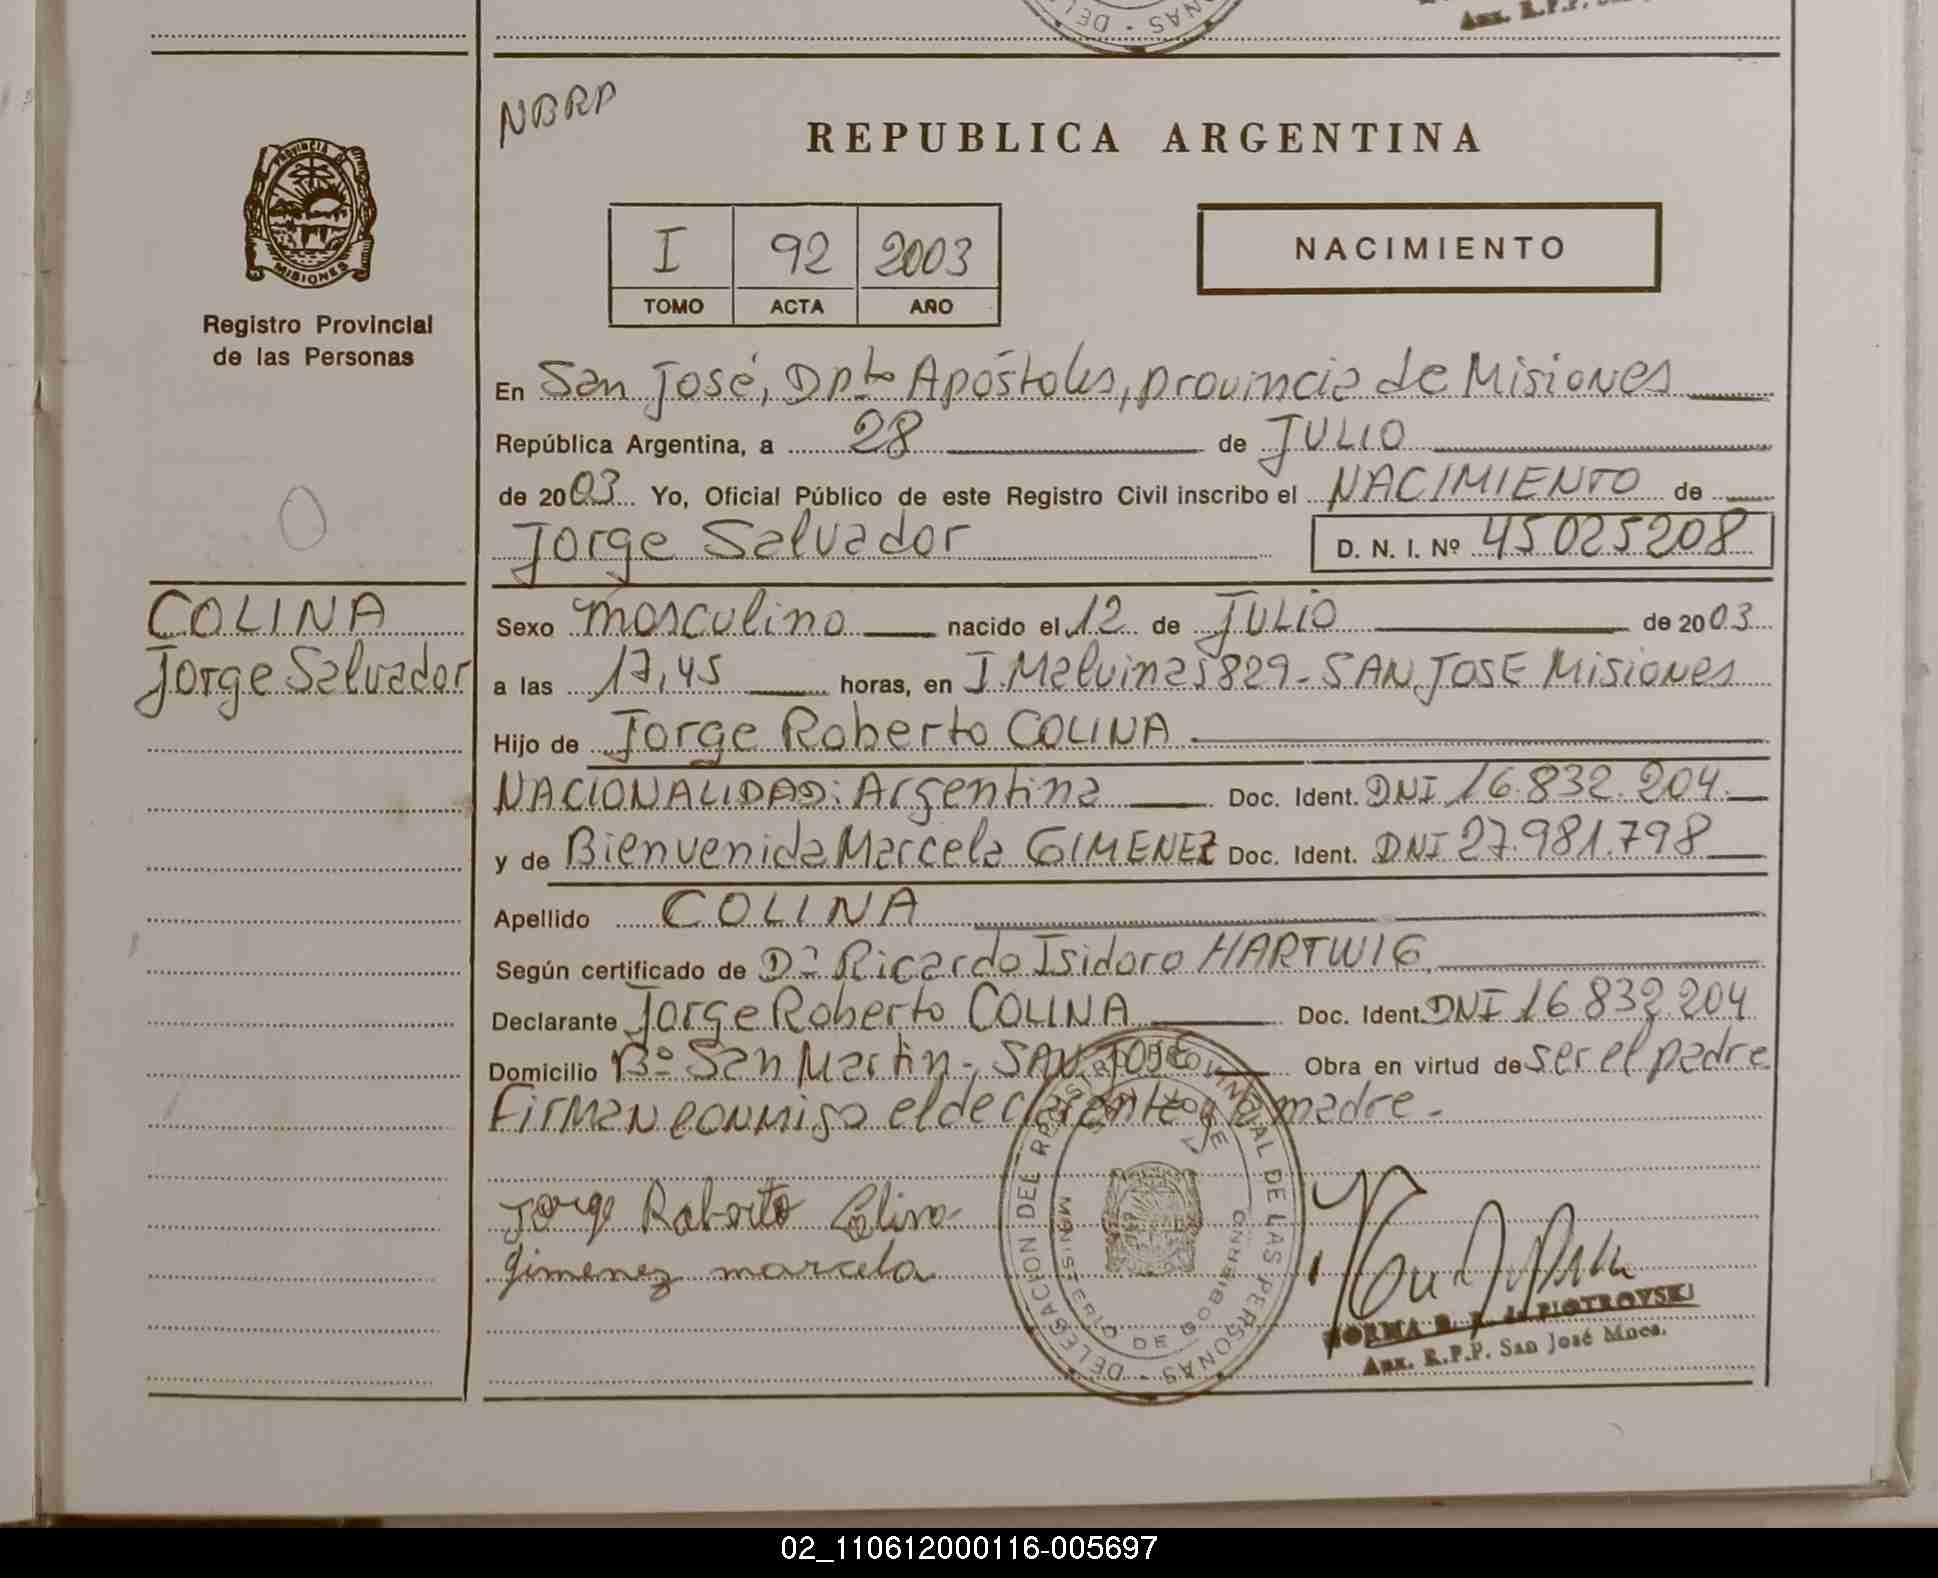 DELE
NAS
Aux. R.P.P.
NBRP
REPUBLICA ARGENTINA
PROVINCIA DE
MISIONES
Registro Provincial
de las Personas
I 92 2003
TOMO ACTA AÑO
NACIMIENTO
En San José, Dpto Apóstoles, provincia de Misiones
República Argentina, a 28 de JULIO
de 2003 Yo, Oficial Público de este Registro Civil inscribo el NACIMIENTO de
Jorge Salvador D. N. I. Nº 45025208
COLINA
Jorge Salvador
Sexo masculino nacido el 12 de JULIO de 2003
a las 17,45 horas, en I. Malvinas 829 - SAN JOSE Misiones
Hijo de Jorge Roberto COLINA
NACIONALIDAD: Argentina Doc. Ident. DNI 16.832.204
y de Bienvenida Marcela GIMENEZ Doc. Ident. DNI 27.981.798
Apellido COLINA
Según certificado de Dr Ricardo Isidoro HARTWIG
Declarante Jorge Roberto COLINA Doc. Ident. DNI 16 832 204
Domicilio Bº San Martin - SAN JOSE Obra en virtud de ser el padre
Firman conmigo el declarante y la madre.
Jorge Raborto Colina
Gimenez marcela
DELEGACION DEL REGISTRO PROVINCIAL DE LAS PERSONAS
SAN JOSE
MINISTERIO DE GOBIERNO
NORMA de PIOTROVSKI
Aux. R.P.P. San José Mnes.
02_110612000116-005697